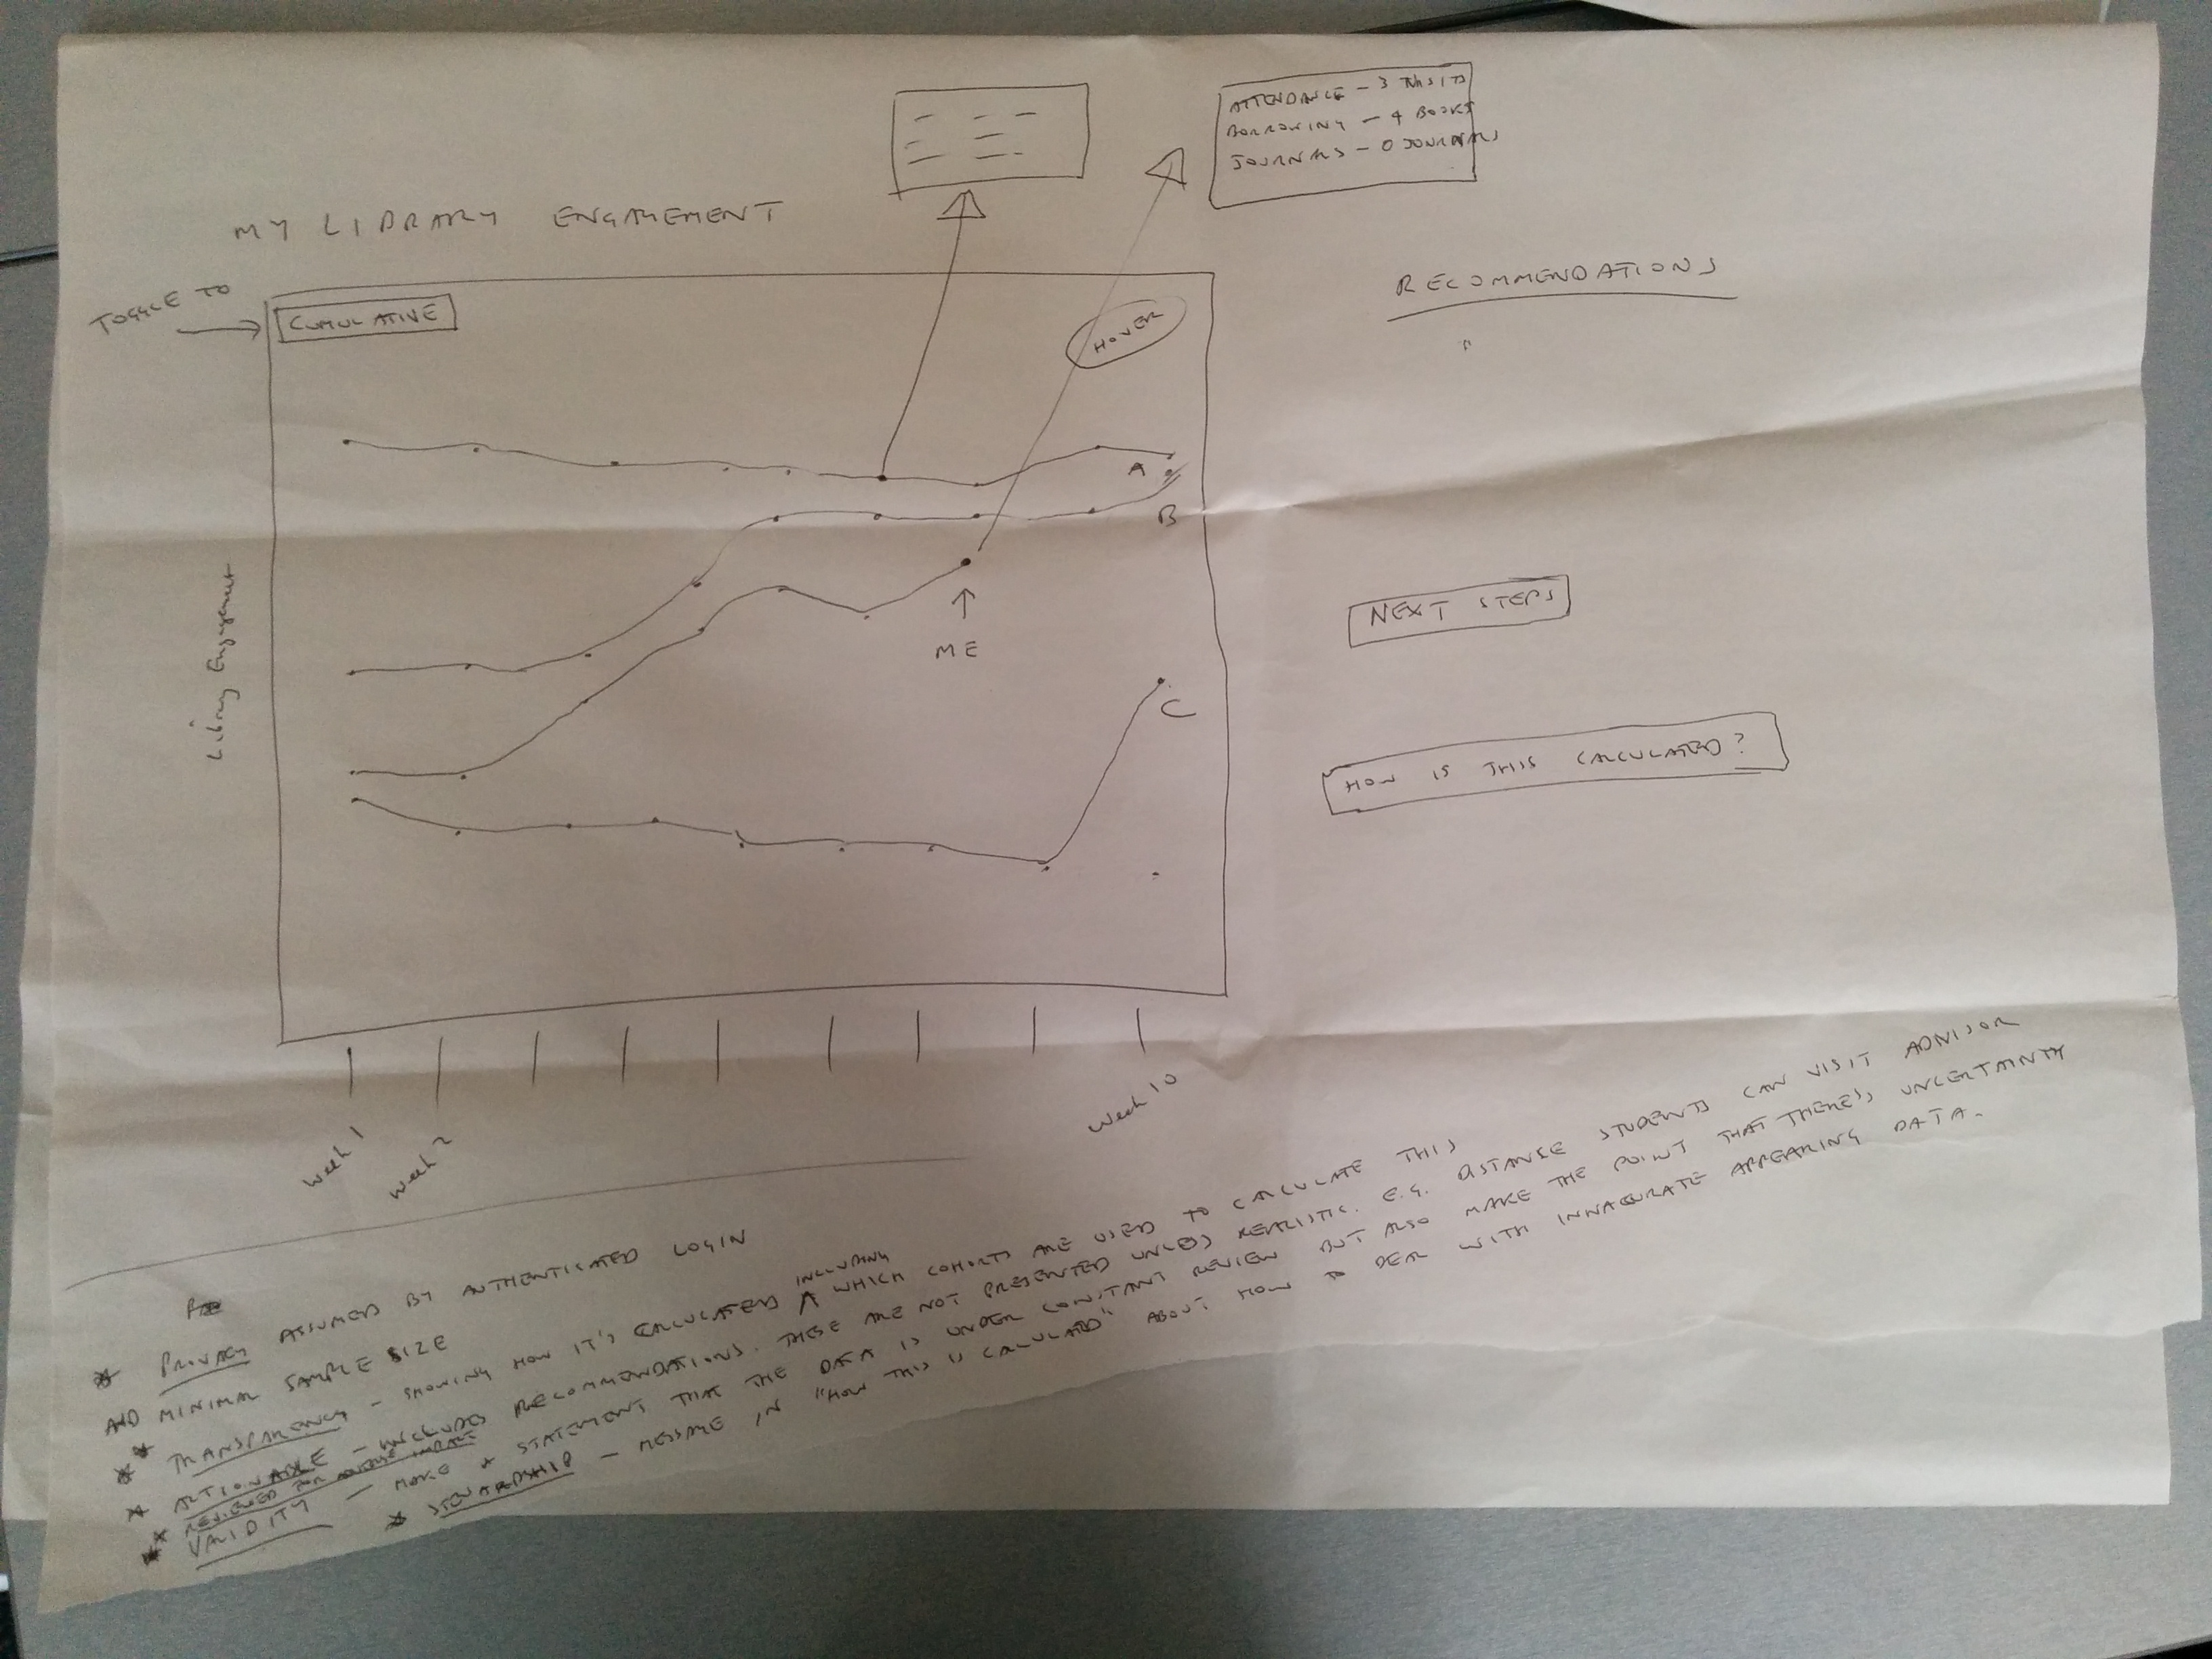 ATTENDANCE - 3 VISITS
BORROWING - 4 BOOKS
JOURNALS - 0 JOURNALS
MY LIBRARY ENGAGEMENT
RECOMMENDATIONS
TOGGLE TO
CUMULATIVE
HOVER
A
B
ME
C
Library Engagement
NEXT STEPS
HOW IS THIS CALCULATED?
Week 1
Week 2
Week 10
* PRIVACY ASSUMED BY AUTHENTICATED LOGIN
AND MINIMAL SAMPLE SIZE
* TRANSPARENCY - SHOWING HOW IT'S CALCULATED INCLUDING WHICH COHORTS ARE USED TO CALCULATE THIS
* ACTIONABLE - INCLUDES RECOMMENDATIONS. THESE ARE NOT PRESENTED UNLESS REALISTIC. E.G. DISTANCE STUDENTS CAN VISIT ADVISOR
* REVIEWED FOR ADVERSE IMPACT
* VALIDITY - MAKE A STATEMENT THAT THE DATA IS UNDER CONSTANT REVIEW BUT ALSO MAKE THE POINT THAT THERE'S UNCERTAINTY
* STEWARDSHIP - MESSAGE IN "HOW THIS IS CALCULATED" ABOUT HOW TO DEAL WITH INNACURATE APPEARING DATA.